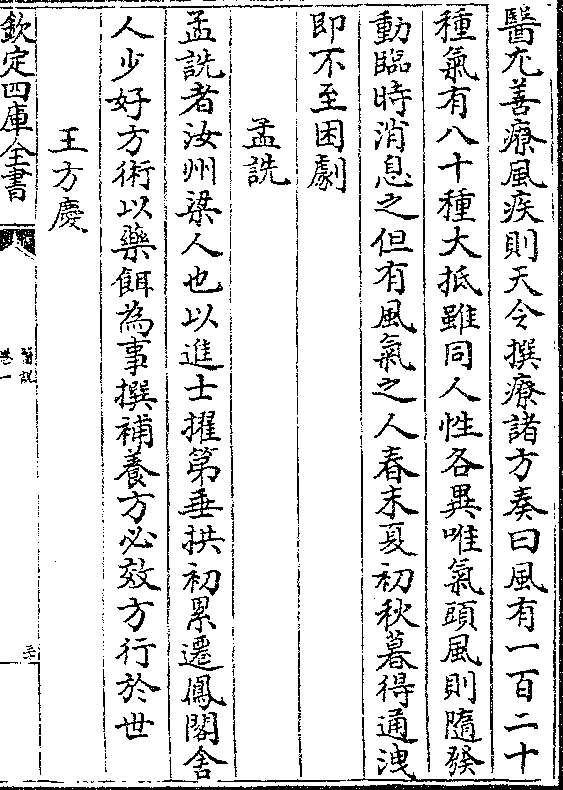 醫尢善療風疾則天令撰療諸方奏曰風有一百二十
種氣有八十種大抵雖同人性各異唯氣頭風則隨發
動臨時消息之但有風氣之人春末夏初秋暮得通洩
即不至困劇
孟詵
孟詵者汝州梁人也以進士擢第垂拱初累遷鳳閣舍
人少好方術以藥餌為事撰補養方必效方行於世
王方慶
欽定四庫全書
醫説
卷一